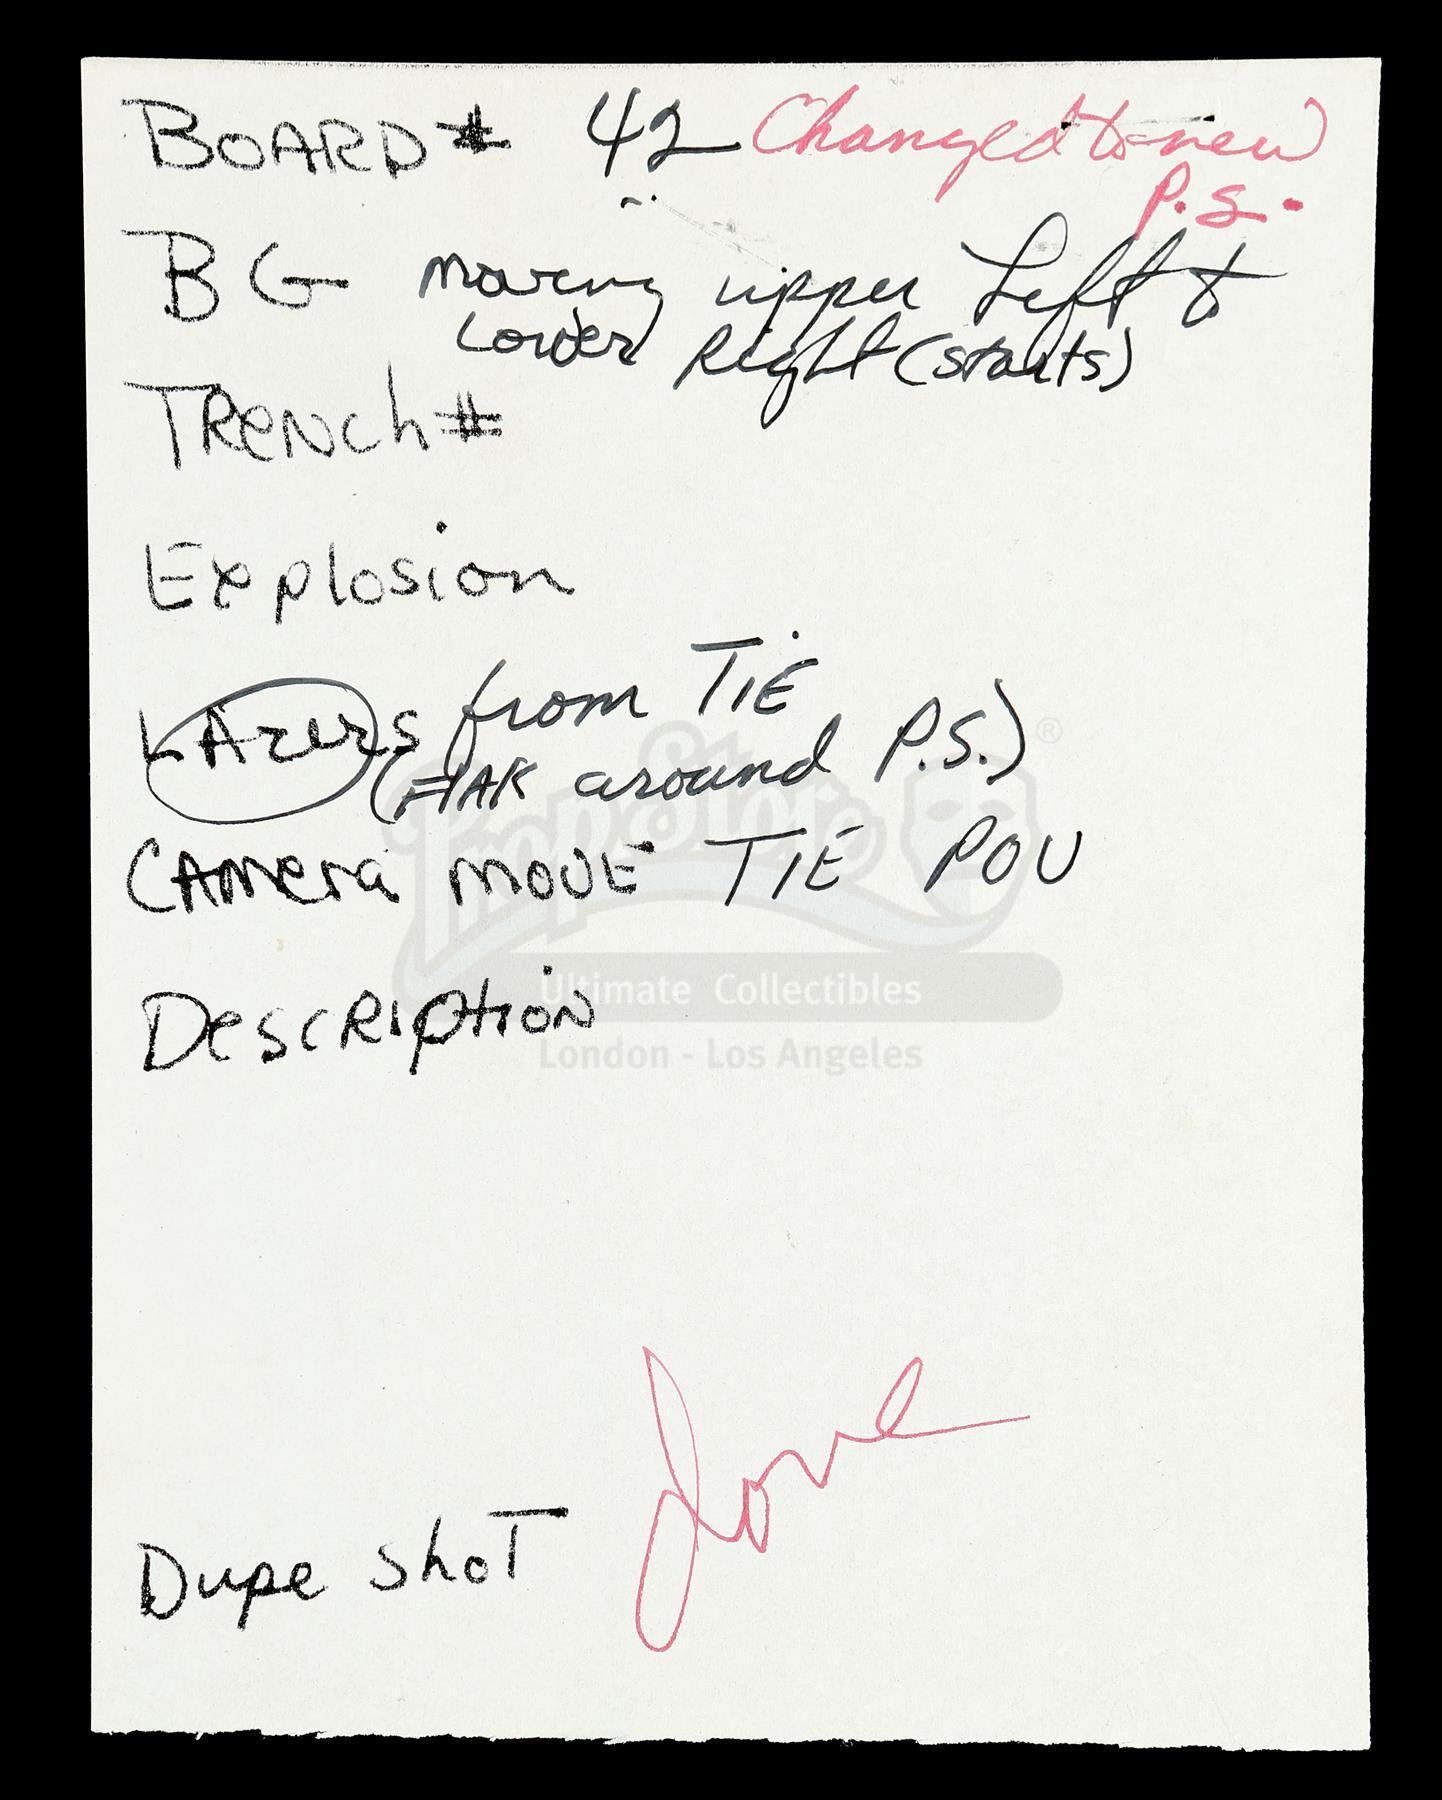 BOARD # 42 Changed to new
P.S.
BG moving upper Left to
Lower Right (starts)
TRENCH #
Explosion
LAzers from TIE
(FLAK around P.S.)
CAMERA MOVE TIE POV
DESCRIPTION
Dupe SHOT
Done
PropStore ®
Ultimate Collectibles
London - Los Angeles